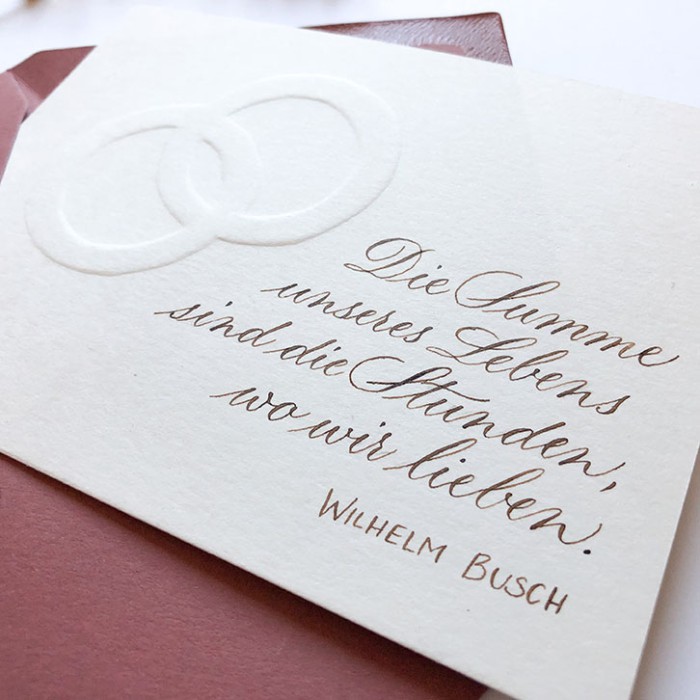 Die Summe
unseres Lebens
sind die Stunden,
wo wir lieben.
WILHELM BUSCH